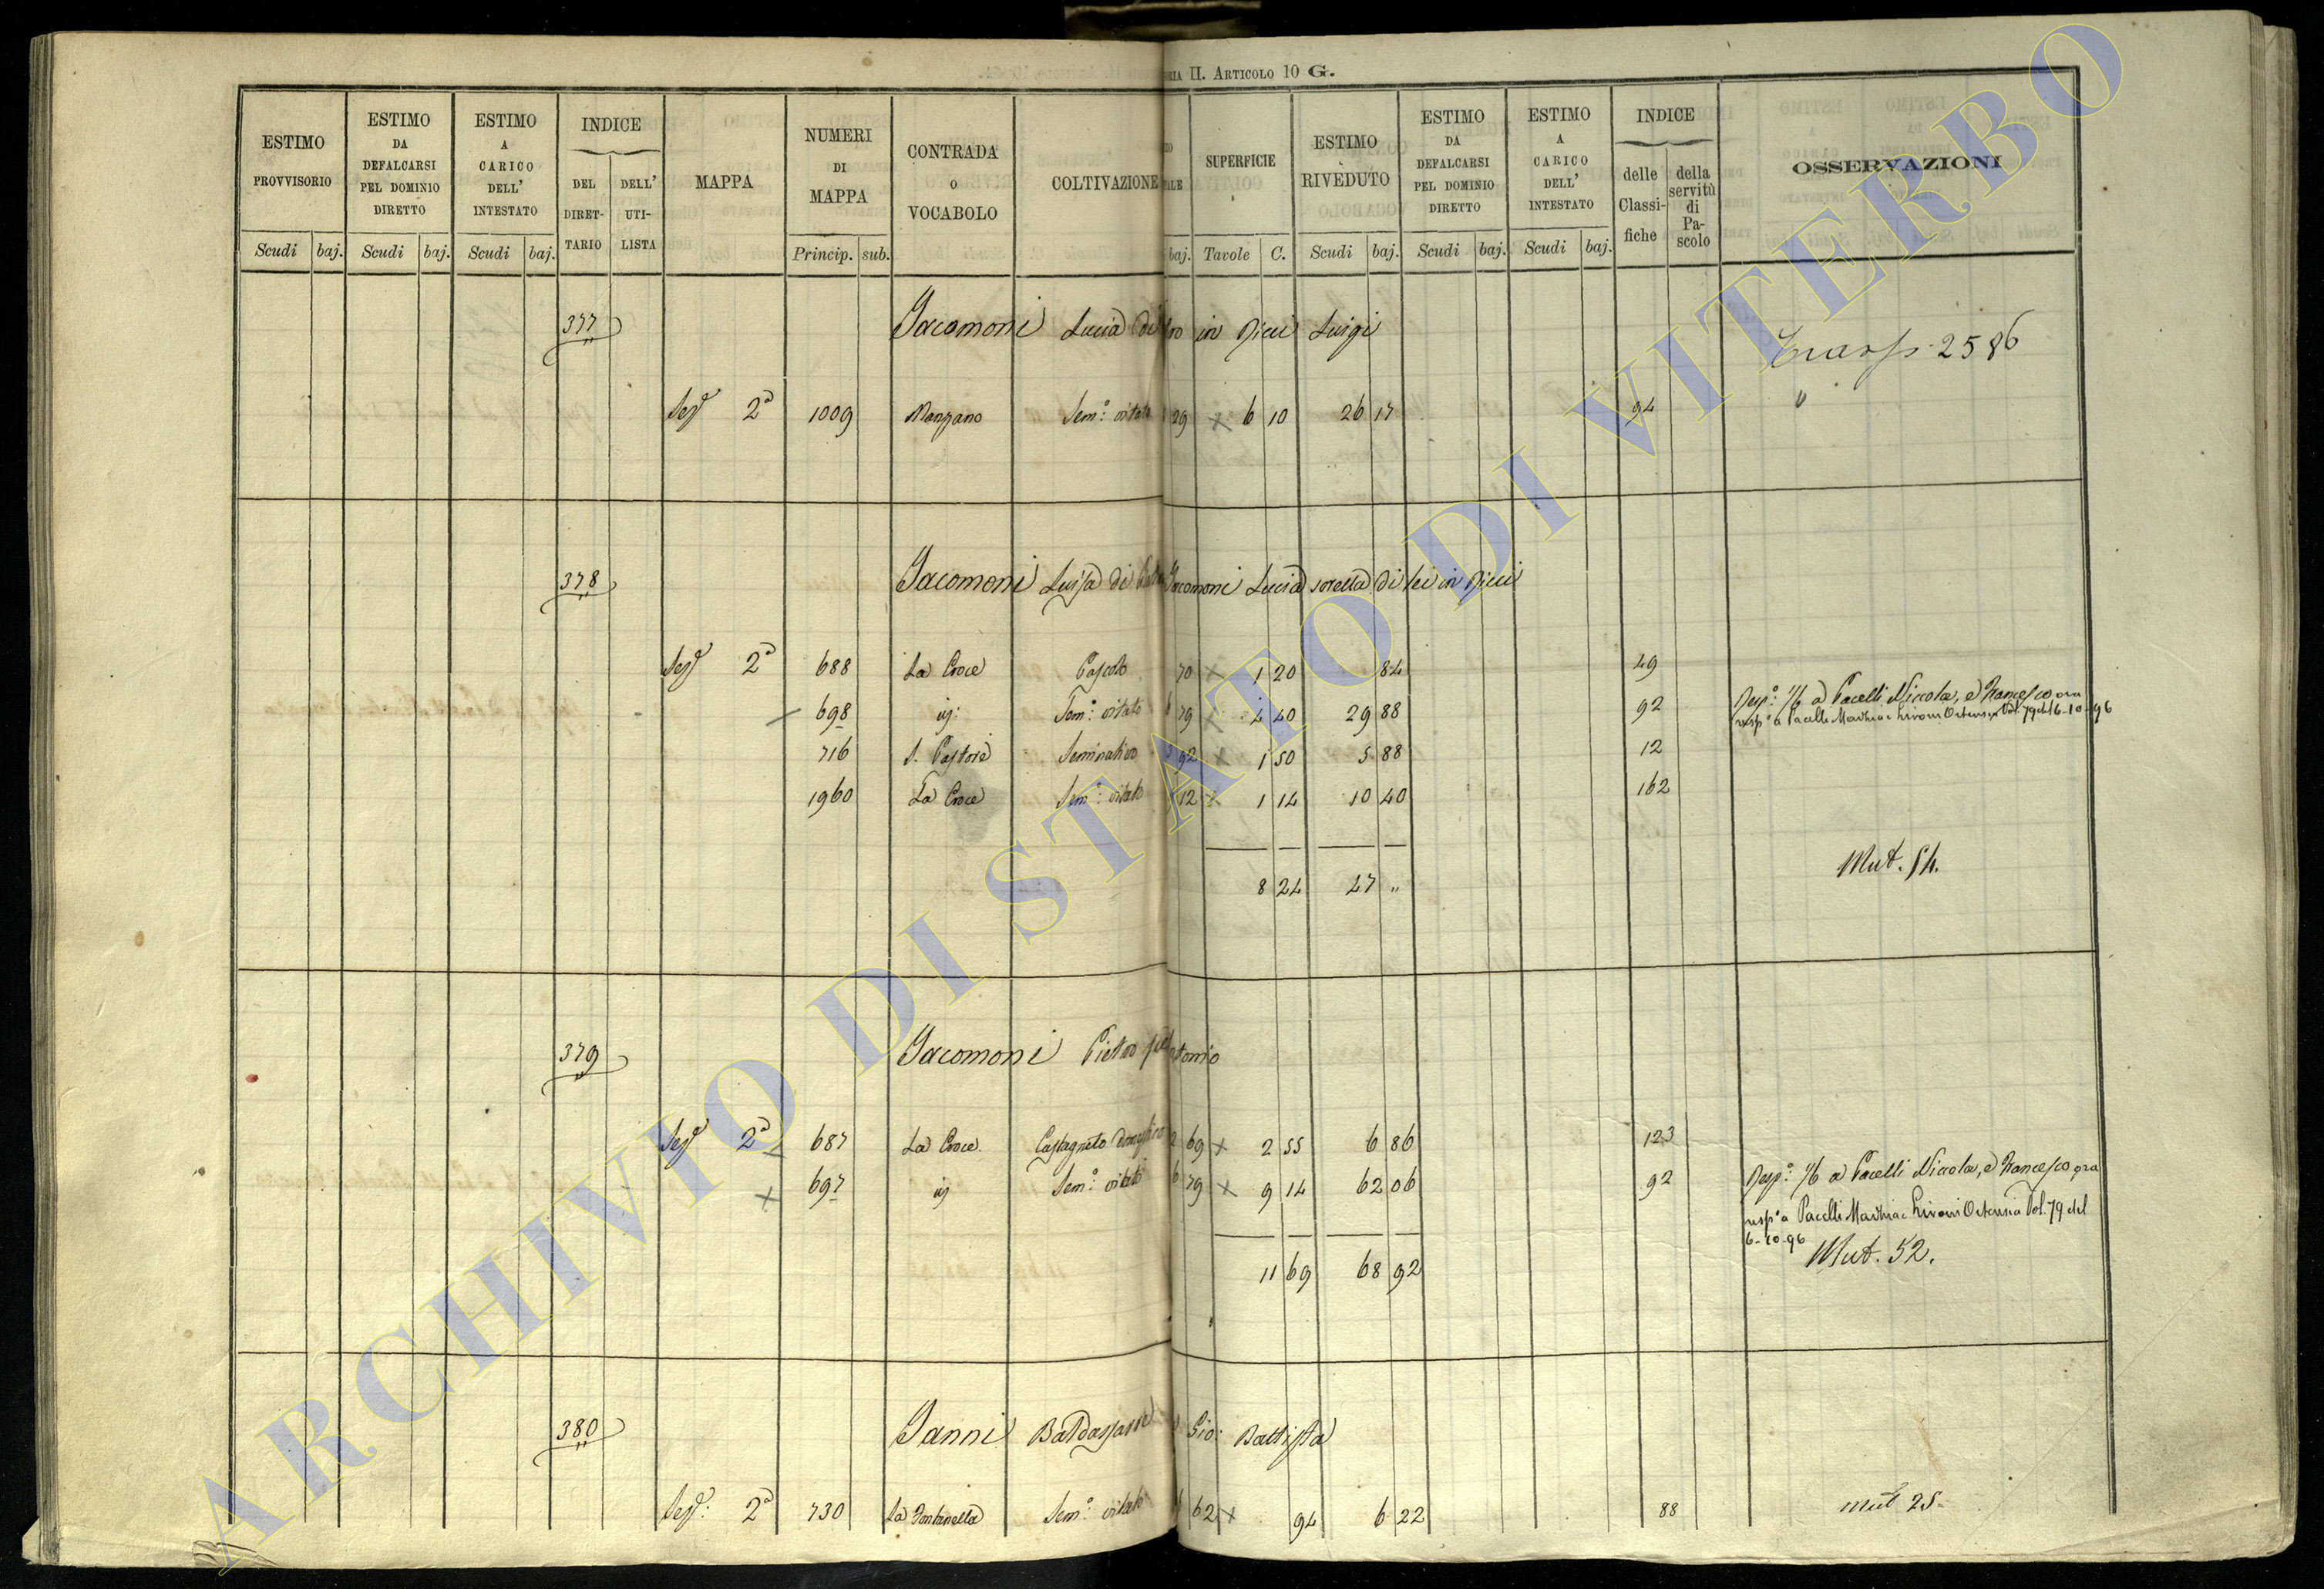 II. ARTICOLO 10 G.
ESTIMO PROVVISORIO
ESTIMO DA DEFALCARSI PEL DOMINIO DIRETTO
ESTIMO A CARICO DELL' INTESTATO
INDICE
DEL DIRET- TARIO
DELL' UTI- LISTA
MAPPA
NUMERI DI MAPPA
CONTRADA O VOCABOLO
COLTIVAZIONE
SUPERFICIE
ESTIMO RIVEDUTO
ESTIMO DA DEFALCARSI PEL DOMINIO DIRETTO
ESTIMO A CARICO DELL' INTESTATO
INDICE
delle Classi- fiche
della servitù di Pa- scolo
OSSERVAZIONI
Scudi baj. Scudi baj. Scudi baj. Princip. sub. baj. Tavole C. Scudi baj. Scudi baj. Scudi baj.
377 Jacomoni Lucia di in Luigi
Trasp. 2586
Sez. 2a 1009 Manzano Sem.o vitato 29 × 6 10 26 17 94 "
378 Jacomoni Luisa di Jacomoni Lucia sorella di lei in
Sez. 2a 688 La Croce Pascolo 70 × 1 20 84 49
698 Sem.o vitato 79 × 4 40 29 88 92 1/6 a Pacelli Niccola, e Francesco ora
a Pacelli Ortensia Vol. 79 del 6-10-96
716 S. Pastore Seminativo 92 × 1 50 5 88 12
1960 La Croce Sem.o vitato 12 × 1 14 10 40 162
Mut. 54.
8 24 47 "
379 Jacomoni Pietro
Sez. 2a 687 La Croce Castagneto domestico 2 69 × 2 55 6 86 123
× 697 Sem.o vitato 6 79 × 9 14 62 06 92 1/6 a Pacelli Niccola, e Francesco, ora
a Pacelli Ortensia Vol. 79 del
6-10-96
Mut. 52.
11 69 68 92
380 Janni Baldassarre Gio: Battista
Sez. 2a 730 La Fontanella Sem.o vitato 62 × 94 6 22 88 mut 25
ARCHIVIO DI STATO DI VITERBO